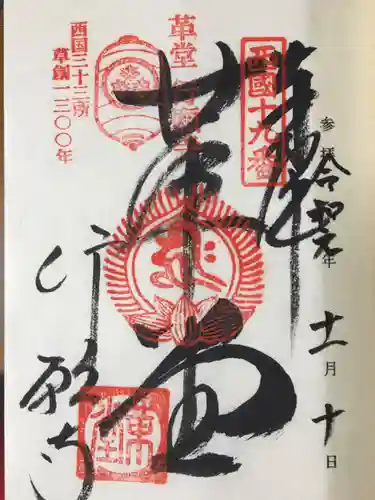 奉拝
参拝 令和元年 十一月 十日
西國十九番
革堂
革堂
行願寺
西国三十三所
草創一三〇〇年